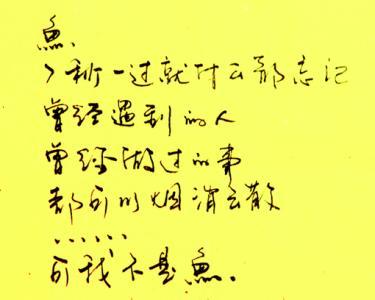 魚、
7秒一过就什么都忘记
曾经遇到的人
曾经做过的事
都可以烟消云散
......
可我不是魚.